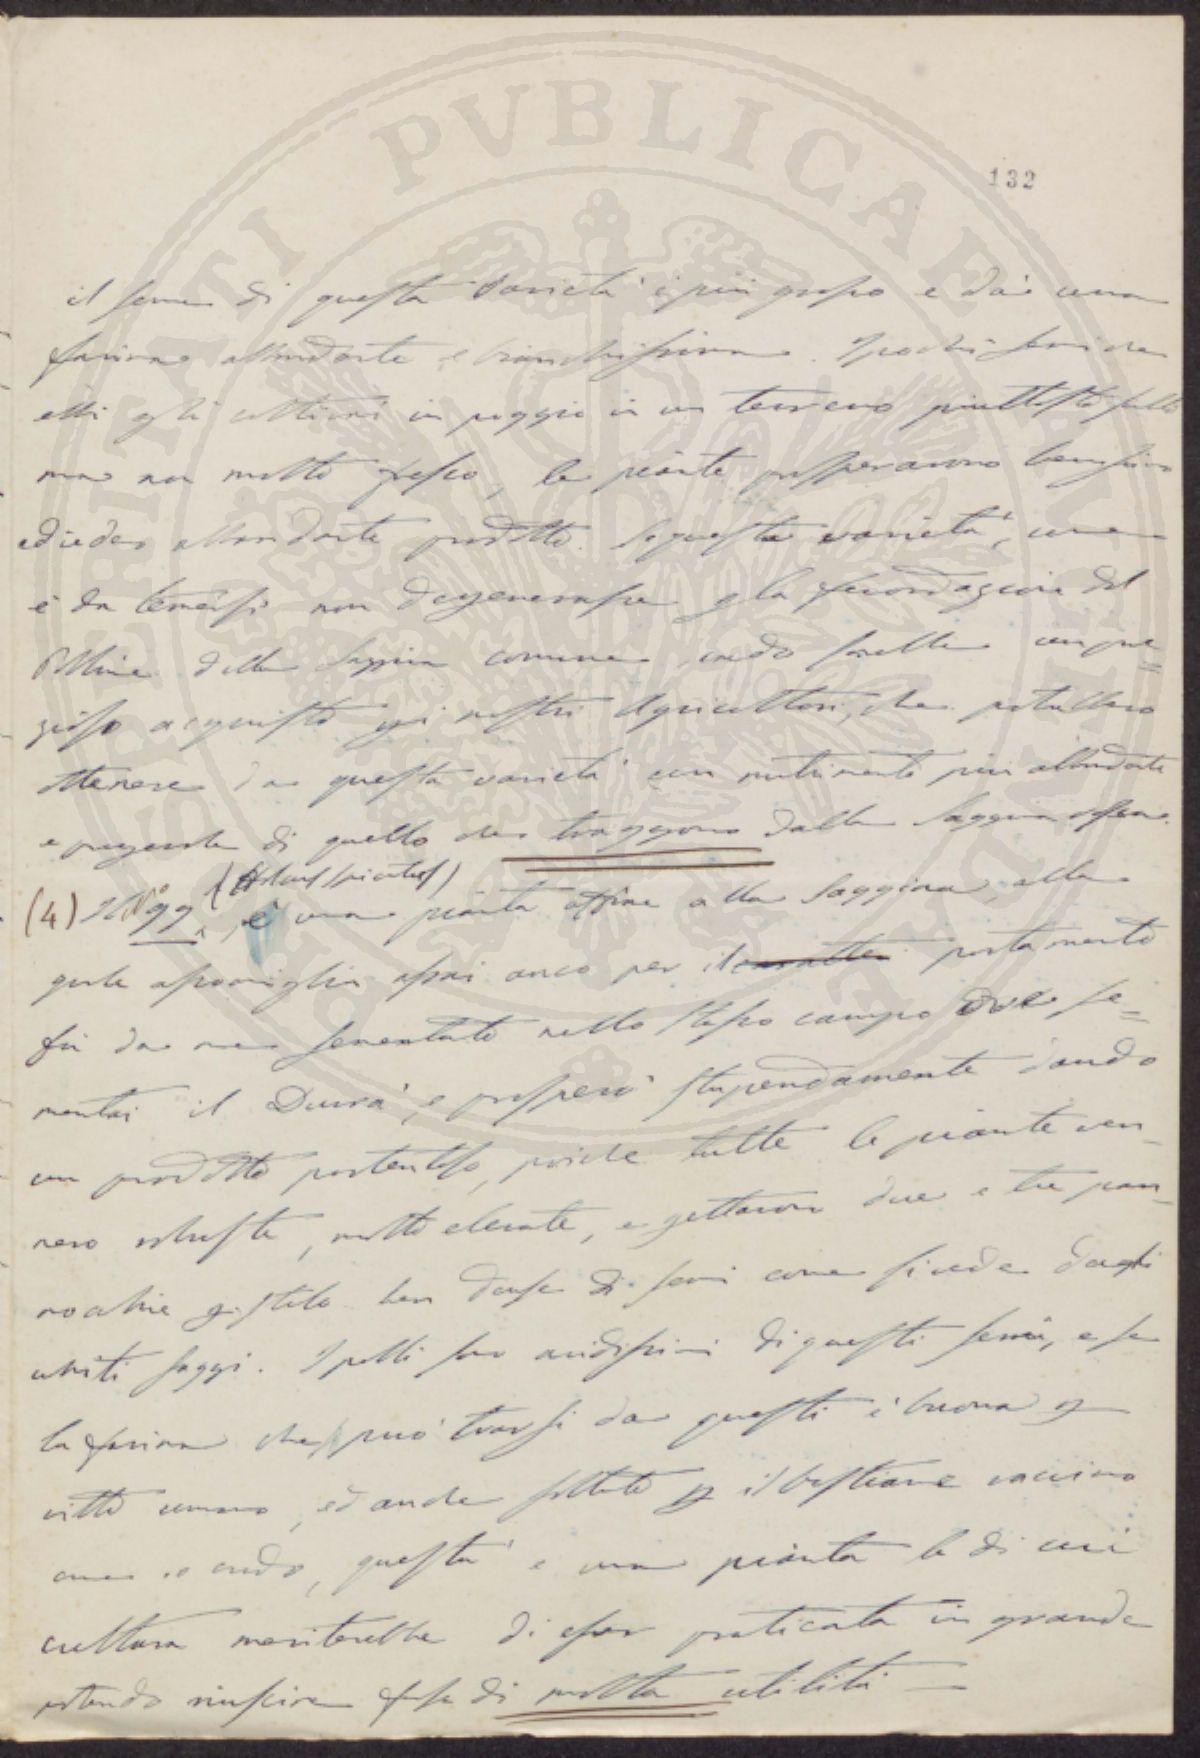 PERITATI PVBLICAE
132
il seme di questa varietà è più grosso e dà una
farina abbondante e bianchissima. I pochi semi che
ebbi gli coltivai in poggio in un terreno piuttosto
ma non molto fresco, le piante prosperarono benissimo
e diedero abbondante prodotto. Se questa varietà, come
è da temersi non degenerasse p la fecondazione del
Polline della Saggina comune, credo sarebbe un pre=
zioso acquisto pei nostri Agricoltori, che potrebbero
ottenere da questa varietà un nutrimento più abbondante
e di quello che traggono dalla Saggina
(4) (Holcus spicatus)
è una pianta affine alla Saggina, alla
quale assomiglia assai anco per il portamento
fu da me sementato nello stesso campo ove se=
mentai il Durra, e prosperò stupendamente dando
un prodotto portentoso, poiché tutte le piante ven-
nero robuste, molto elevate, e gettarono due e tre pan-
nocchie p stelo ben dense di semi come si vede dagli
uniti saggi. I polli son avidissimi di questi semi, e se
la farina che può trarsi da questi è buona p
vitto umano, ed anche soltanto p il bestiame vaccino
come io credo, questa è una pianta la di cui
cultura meriterebbe di esser praticata in grande
potendo riuscire di molta utilità —